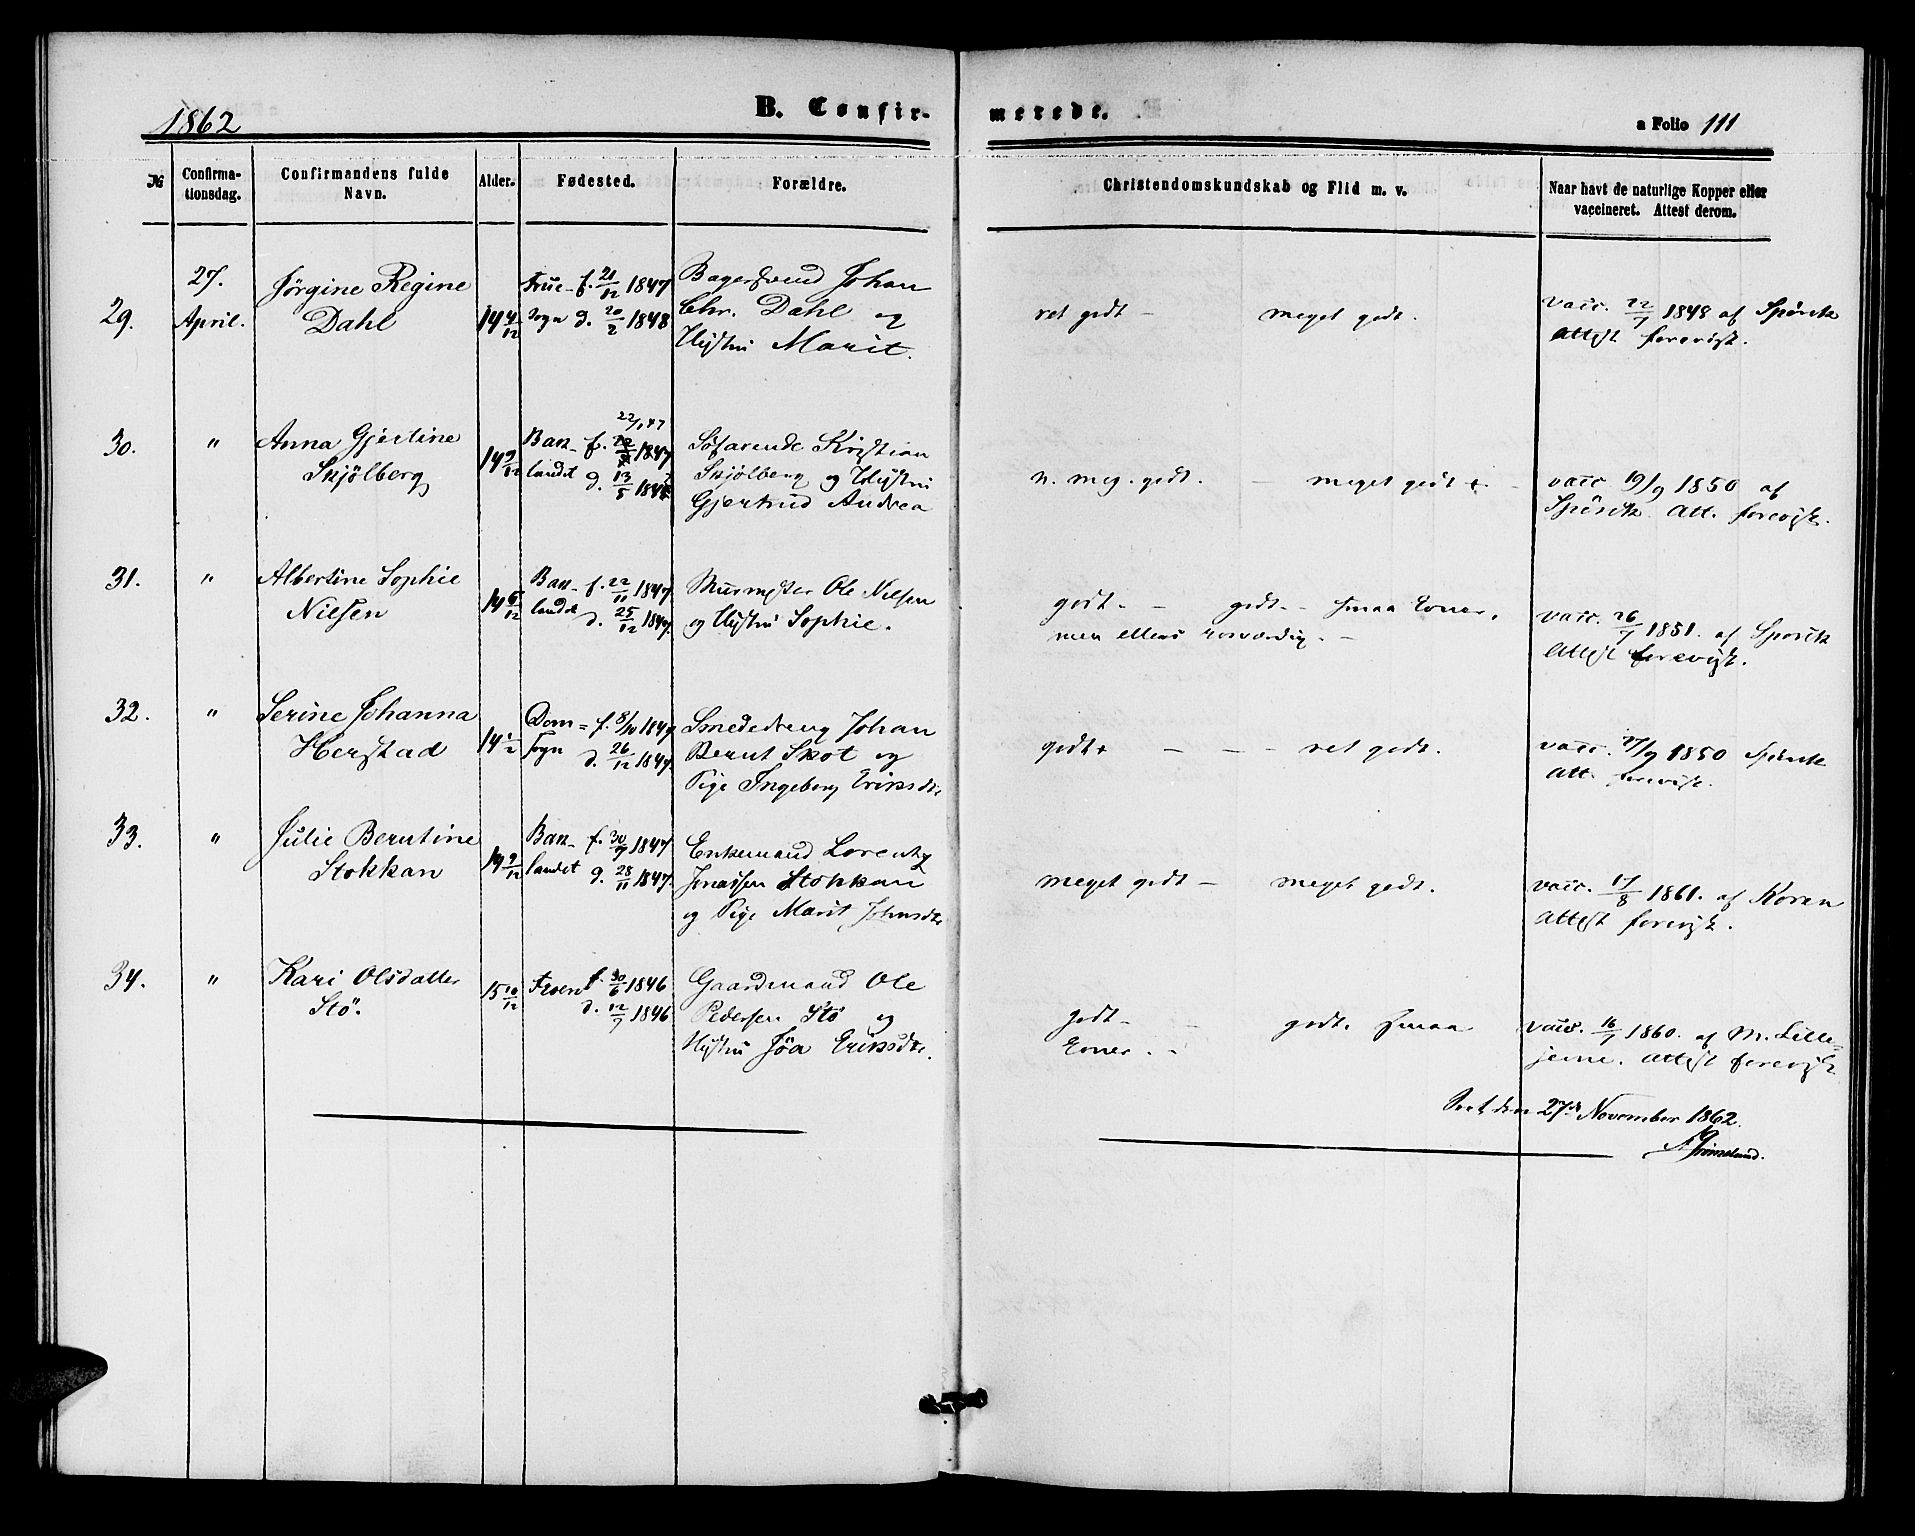 1862
B. Confirmerede.
a Folio 111
№
Confirmationsdag.
Confirmandens fulde Navn.
Alder.
Fødested.
Forældre.
Christendomskundskab og Flid m. v.
Naar havt de naturlige Kopper eller vaccineret. Attest derom.
29.
27.
April.
Jørgine Regine
Dahl
14 4/12
Frue- f. 21/12 1847
Sogn d. 20/2 1848
Bagersvend Johan
Chr. Dahl og
Hustru Marit.
ret godt - meget godt.
vacc. 22/7 1848 af Spörck
Attest forevist.
30.
"
Anna Gjertine
Skjölberg
14 9/12
22/7 47
Bak- f. 1847
landet d. 13/5 184
Söfarende Kristian
Skjölberg og Hustru
Gjertrud Andrea
n. meg. godt. - meget godt + -
vacc. 19/9 1850 af
Spörck Att. forevist.
31.
"
Albertine Sophie
Nielsen
14 5/12
Bak- f. 22/11 1847
landet d. 25/12 1847.
Murmester Ole Nielsen
og Hustru Sophie.
godt. - godt. - smaa Evner,
men ellers rosværdig. -
vacc. 26/7 1851. af Spörck
Attest forevist.
32.
"
Serine Johanna
Herstad
14 1/2
Dom= f. 8/10 1847
Sogn d. 26/12 1847
Smededreng Johan
Bernt Skot og
Pige Ingeborg Eriksdtr
godt + - - - ret godt.
vacc. 17/9 1850 Spörck
Att. forevist.
33.
"
Julie Berntine
Stokkan
14 9/12
Bak- f. 30/7 1847
landet d. 28/11 1847.
Enkemand Lorentz
Jonassen Stokkan
og Pige Marit Johnsdtr
meget godt - meget godt.
vacc. 17/8 1861. af Koren
Attest forevist.
34.
"
Kari Olsdatter
Stö.
15 10/12
Frosen f. 30/6 1846
d. 12/7 1846
Gaardmand Ole
Pedersen Stö og
Hustru Jöa Eriksdtr.
godt - - godt. smaa
Evner. -
vacc. 16/7 1860. af M. Lille-
jerne. Attest forevist
Seet den 27de November 1862.
Grimelund.